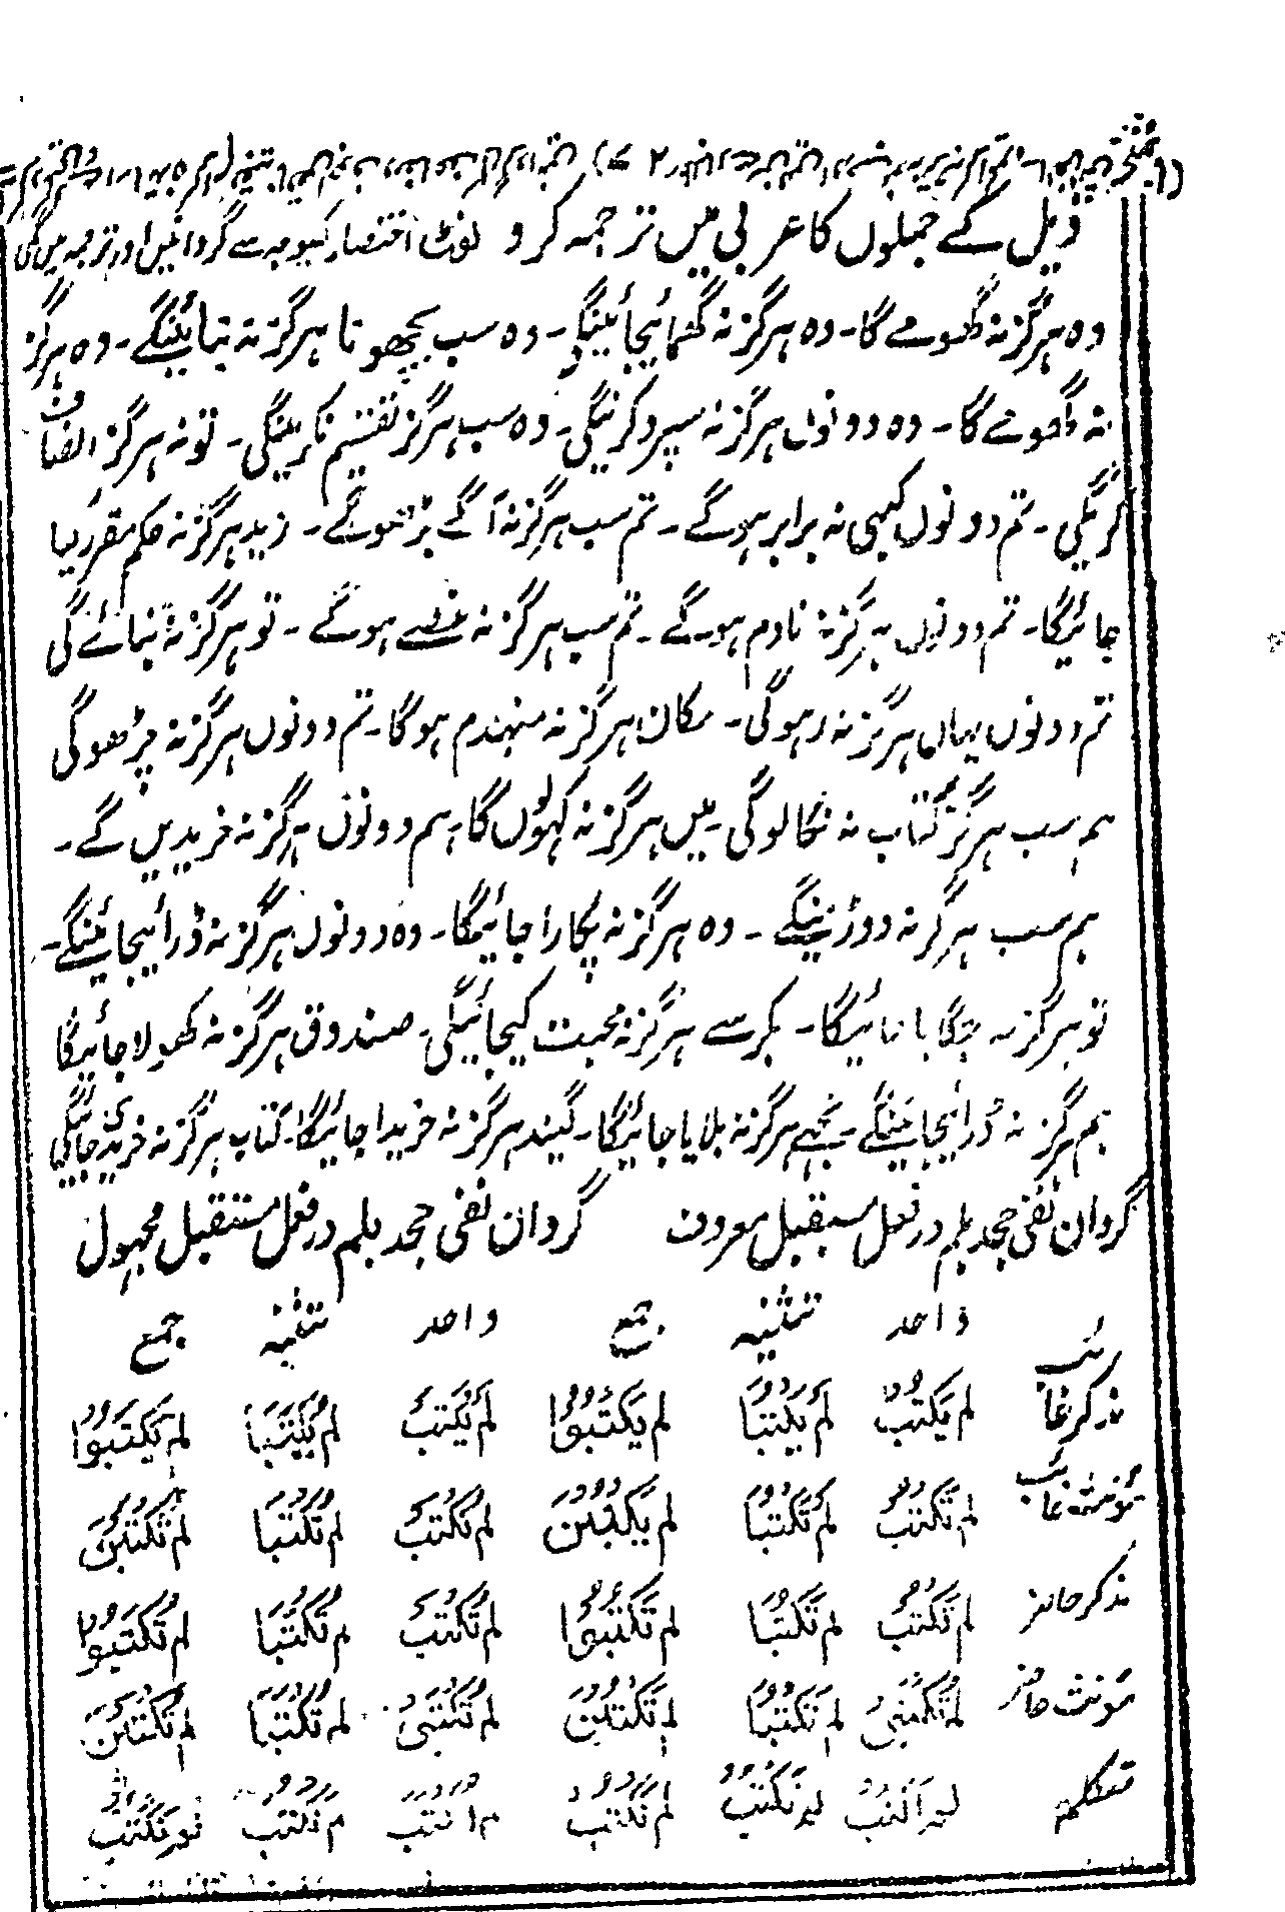 ذیل کے جملوں کا عربی میں ترجمہ کرو نوٹ اختصار کیوجہ سے گردانیں اور ترجمہ میں کی
وہ ہرگز نہ گھومے گا۔ وہ ہرگز نہ گھمائیجائینگے۔ وہ سب بچھونا ہرگز نہ بنائینگے۔ وہ ہرگز
نہ گھومے گا۔ وہ دونوں ہرگز نہ سپرد کرینگی۔ وہ سب ہرگز تقسیم نکرینگی۔ تو نہ ہرگز انصاف
کریگی۔ تم دونوں کبھی نہ برابر ہوگے۔ تم سب ہرگز نہ آگے بڑھوگے۔ زید ہرگز نہ حکم مقرر کیا
جائیگا۔ تم دونوں ہرگز نہ نادم ہوگے۔ تم سب ہرگز نہ غصے ہوگے۔ تو ہرگز نہ بنائے گی
تم دونوں یہاں ہرگز نہ رہوگی۔ مکان ہرگز نہ منہدم ہوگا۔ تم دونوں ہرگز نہ چڑھوگی
ہم سب ہرگز کتاب نہ نکالوگی۔ میں ہرگز نہ کہولوں گا۔ ہم دونوں ہرگز نہ خریدیں گے۔
ہم سب ہرگز نہ دوڑینگے۔ وہ ہرگز نہ پکارا جائیگا۔ وہ دونوں ہرگز نہ ڈرائیجائینگے۔
تو ہرگز نہ جگایا جائیگا۔ بکر سے ہرگز نہ محبت کیجائیگی۔ صندوق ہرگز نہ کھولا جائیگا
ہم ہرگز نہ ڈرائیجائینگے۔ تجھے ہرگز نہ بلایا جائیگا۔ گیند ہرگز نہ خریدا جائیگا۔ کتاب ہرگز نہ خریدی جائیگی
گردان نفی جحد بلم در فعل مستقبل معروف گردان نفی جحد بلم در فعل مستقبل مجہول
واحد تثنیہ جمع واحد تثنیہ جمع
مذکر غائب لم یَکتُبْ لم یَکتُبَا لم یَکتُبُوا لم یُکتَبْ لم یُکتَبَا لم یُکتَبُوا
مونث غائب لم تَکتُبْ لم تَکتُبَا لم یَکتُبْنَ لم تُکتَبْ لم تُکتَبَا لم تُکتَبْنَ
مذکر حاضر لم تَکتُبْ لم تَکتُبَا لم تَکتُبُوا لم تُکتَبْ لم تُکتَبَا لم تُکتَبُوا
مونث حاضر لم تَکتُبِی لم تَکتُبَا لم تَکتُبْنَ لم تُکتَبِی لم تُکتَبَا لم تُکتَبْنَ
متکلم لم اَکتُبْ لم نَکتُبْ لم نَکتُبْ لم اُکتَبْ لم نُکتَبْ لم نُکتَبْ